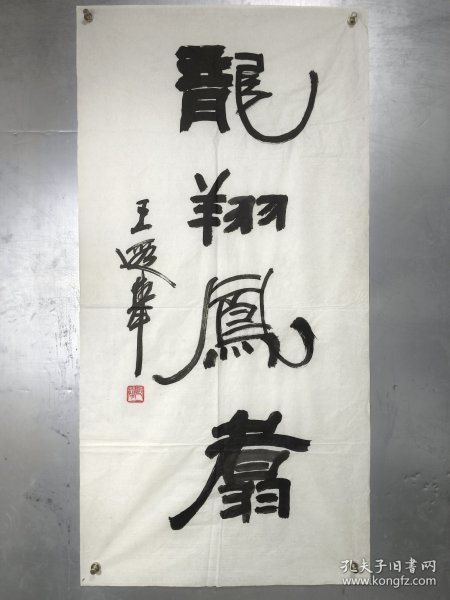 龍翔鳳翥
王遐舉
孔夫子旧书网
www.kongfz.com